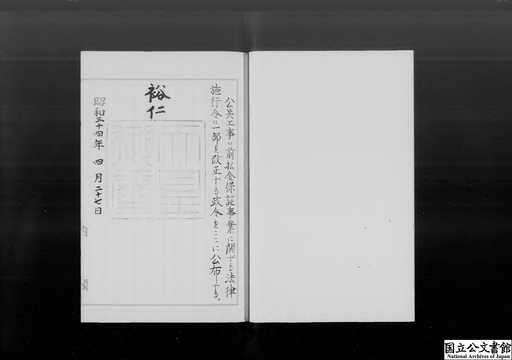 公共工事の前払金保証事業に関する法律
施行令の一部を改正する政令をここに公布する。
裕仁
天皇御璽
昭和三十四年四月二十七日
内閣
国立公文書館
National Archives of Japan